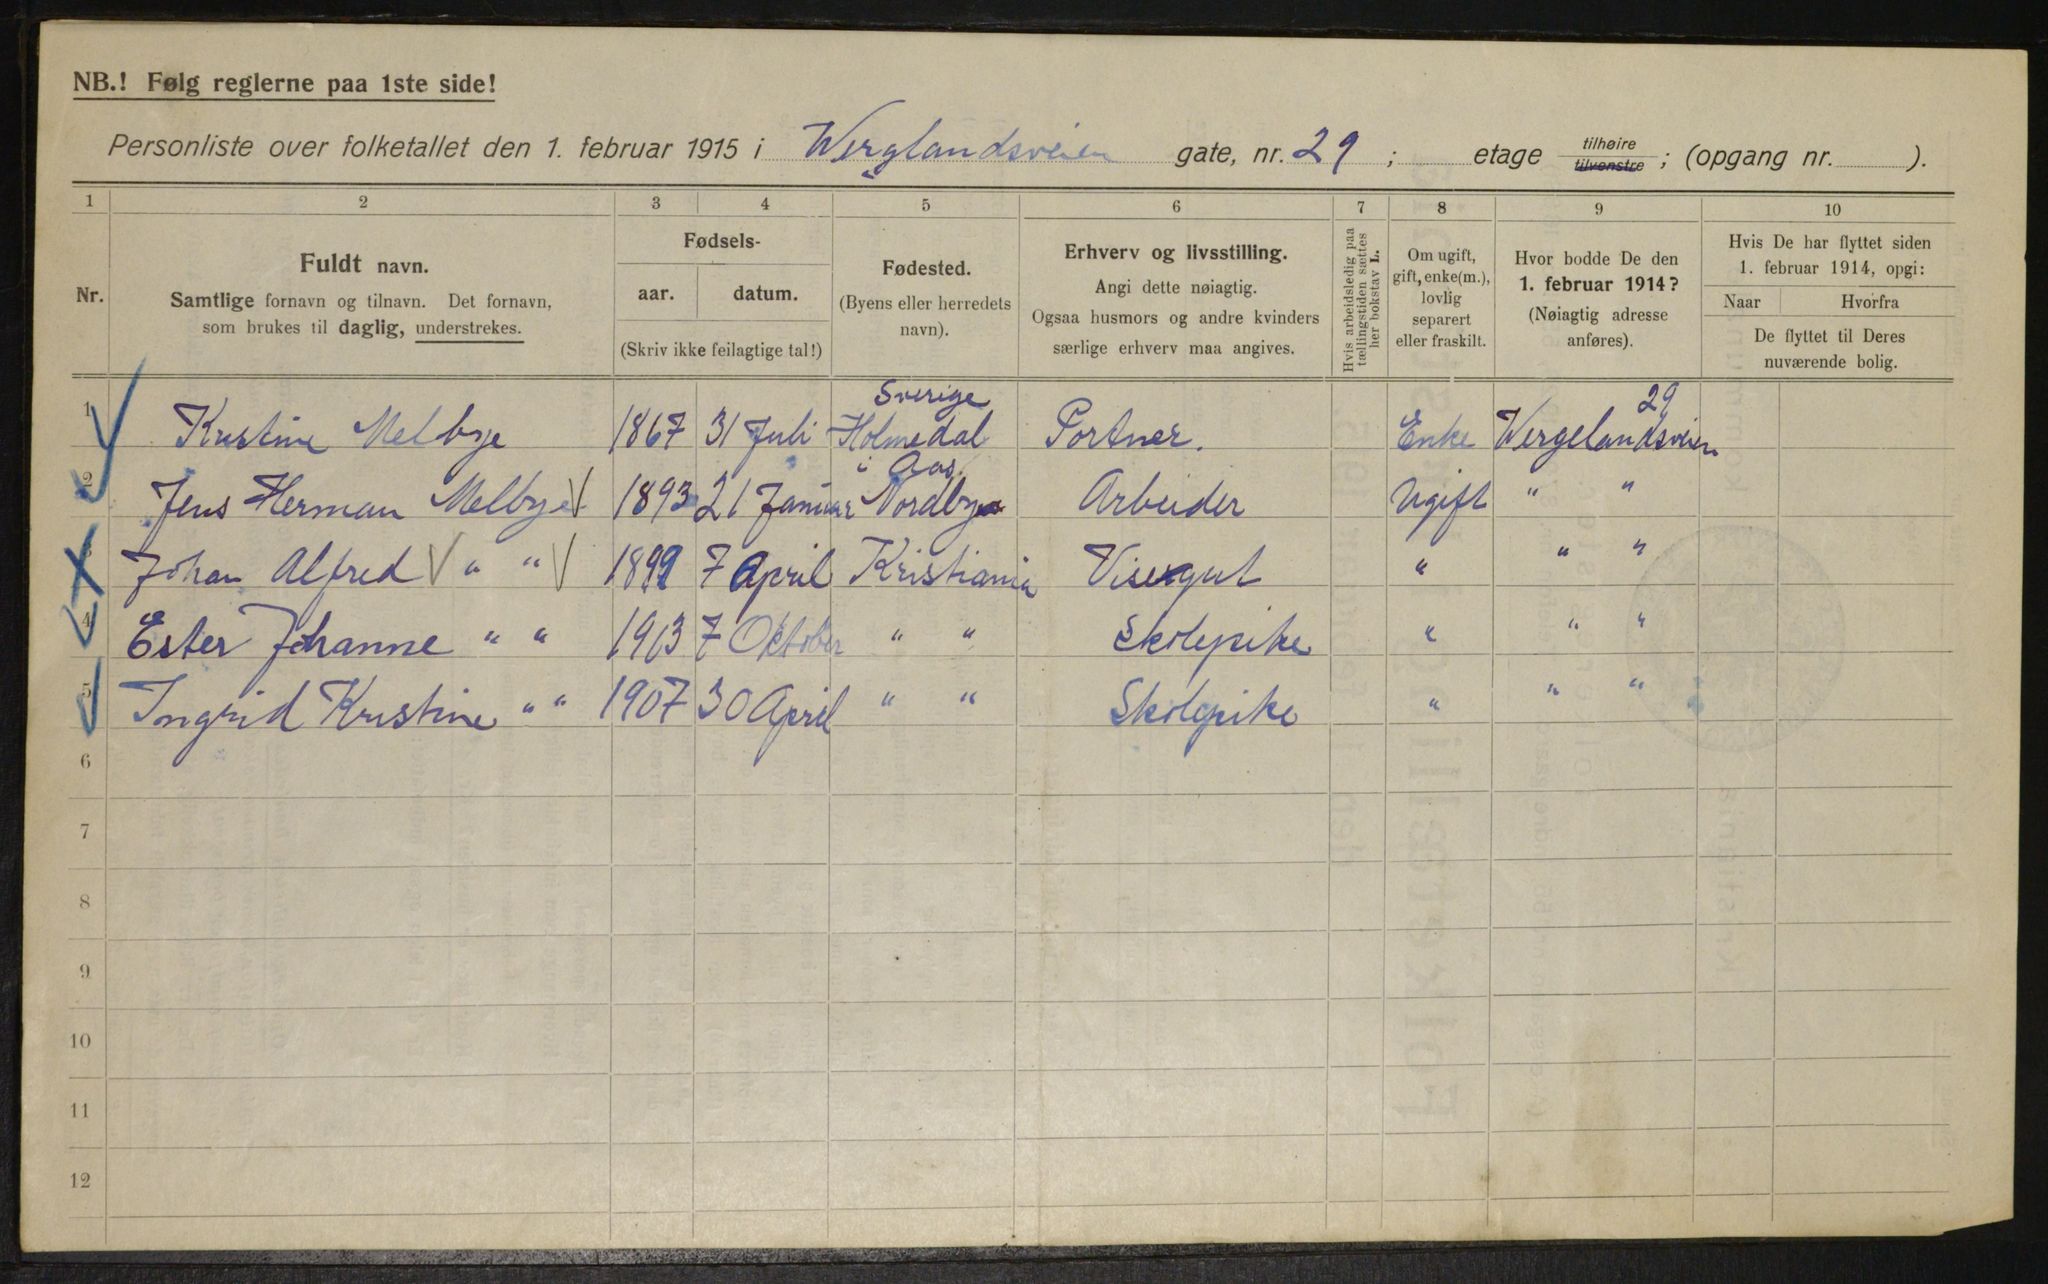 NB.! Følg reglerne paa 1ste side!
Personliste over folketallet den 1. februar 1915 i Werglandsveien gate, nr. 29 ; etage tilhøire tilvenstre ; (opgang nr. ).
1 2 3 4 5 6 7 8 9 10
Nr.
Fuldt navn.
Samtlige fornavn og tilnavn. Det fornavn,
som brukes til daglig, understrekes.
Fødsels-
aar. datum.
(Skriv ikke feilagtige tal!)
Fødested.
(Byens eller herredets
navn).
Erhverv og livsstilling.
Angi dette nøiagtig.
Ogsaa husmors og andre kvinders
særlige erhverv maa angives.
Hvis arbeidsledig paa
tællingstiden sættes
her bokstav L.
Om ugift,
gift, enke(m.),
lovlig
separert
eller fraskilt.
Hvor bodde De den
1. februar 1914?
(Nøiagtig adresse
anføres).
Hvis De har flyttet siden
1. februar 1914, opgi:
Naar Hvorfra
De flyttet til Deres
nuværende bolig.
Sverige 29
1 Kristine Melbye 1867 31 Juli Holmedal Portner. Enke Wergelandsveien
i Aas
2 Jens Herman Melbye 1893 21 Januar Nordby Arbeider Ugift " "
3 Johan Alfred " " 1899 7 April Kristiania Visergut " " "
4 Ester Johanne " " 1903 7 Oktober " " Skolepike " " "
5 Ingrid Kristine " " 1907 30 April " " Skolepike " " "
6
7
8
9
10
11
12